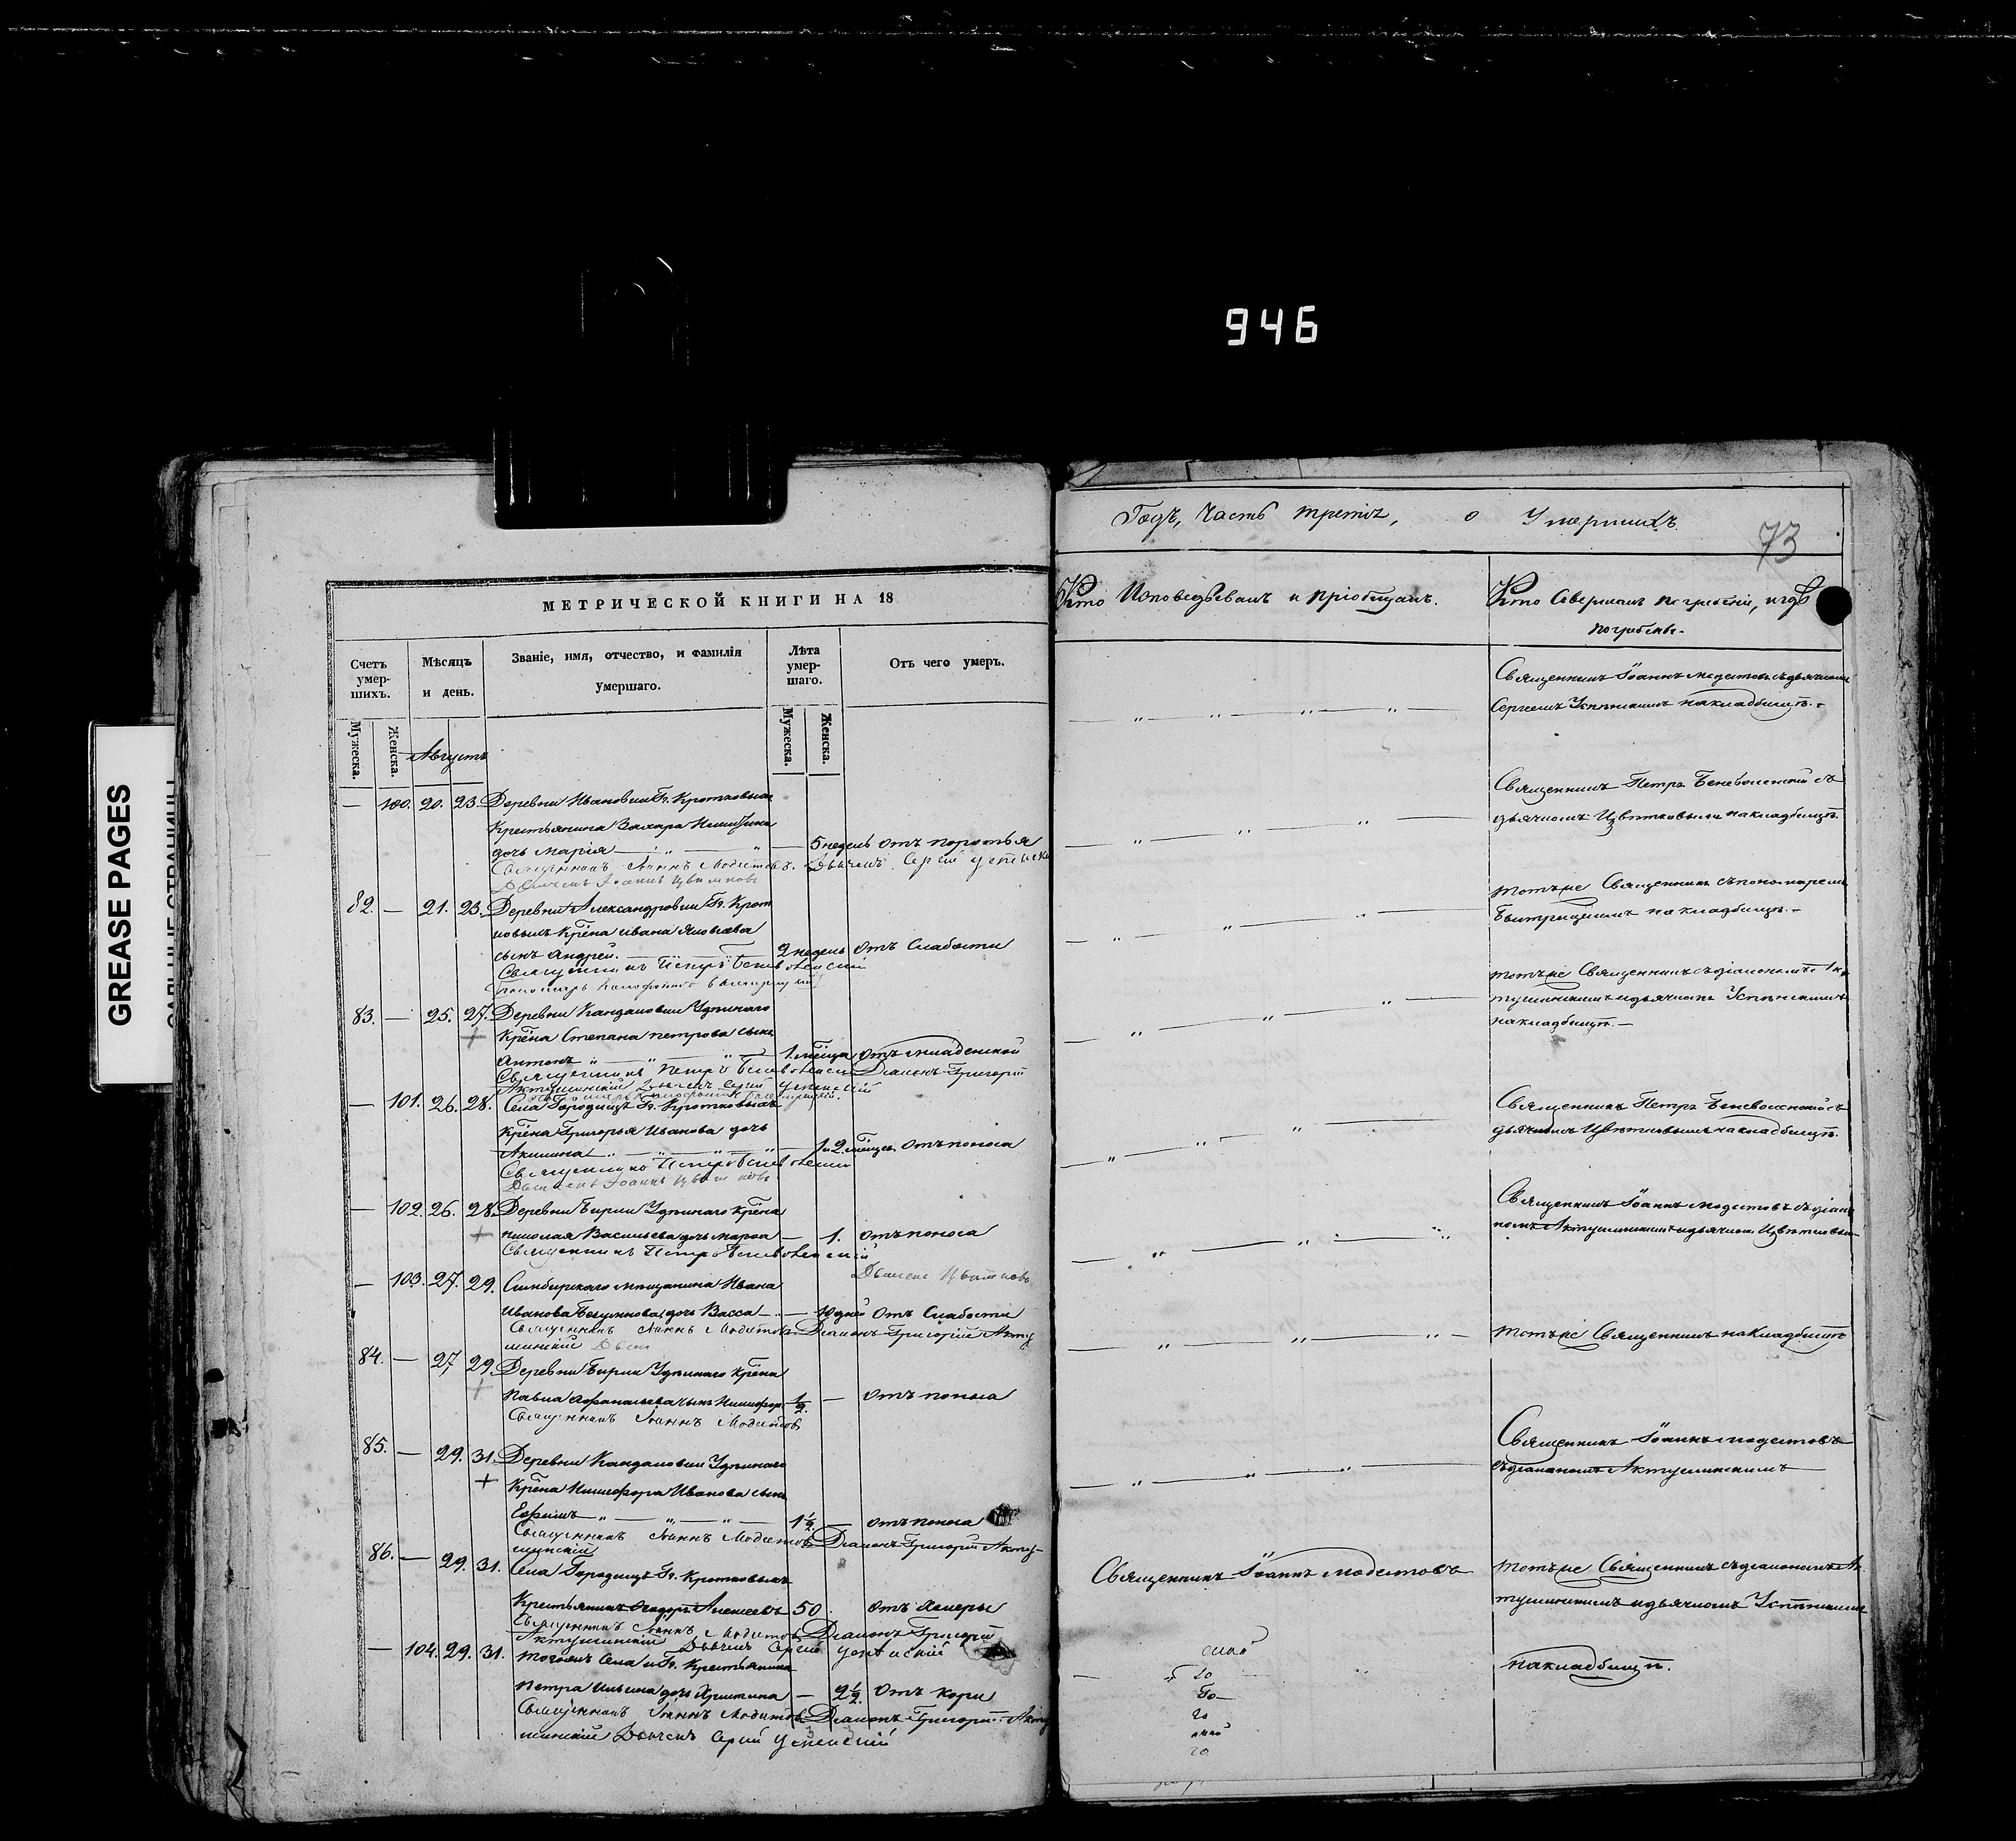 946
GREASE PAGES
МЕТРИЧЕСКОЙ КНИГИ НА 18
Счетъ умер-шихъ.
Мѣсяцъ и день.
Званіе, имя, отчество, и фамилія умершаго.
Лѣта умер-шаго.
Отъ чего умеръ.
Мужеска.
Женска.
Августъ
Мужеска.
Женска.
— 100. 20. 23. Деревни Ивановки Гг. Кротковыхъ
Крестьянина Захара Никитина
дочь Марія — 5 недель отъ
Священникъ Іоаннъ Модестовъ. Дьячекъ Сергій
Дьячекъ Іоаннъ Цвѣтковъ
82. — 21. 23. Деревни Александровки Гг. Крот
ковыхъ Крёна Ивана Яковлева
сынъ Андрей. — 2 недель отъ Слабости
Священникъ Петръ Беневоленскій
Пономарь
83. — 25. 27. Деревни Кандаловки Удѣльнаго
Крёна Степана Петрова сынъ
Антонъ — 1. мѣсяца отъ младенской
Священникъ Петръ Беневоленскій Діаконъ Григорій
Актушинскій Дьячекъ Сергій Успенскій
— 101. 26. 28. Села Городищъ Гг. Кротковыхъ
Крёна Григорья Иванова дочь
Акилина — отъ поноса
Священникъ Петръ Беневоленскій
Дьячекъ Іоаннъ Цвѣтковъ
— 102. 26. 28. Деревни Бирли Удѣльнаго Крёна
Николая Васильева дочь Марѳа — 1. отъ поноса
Священникъ Петръ Беневоленскій
Дьячекъ Цвѣтковъ
— 103. 27. 29. Симбирскаго мѣщанина Ивана
Иванова дочь Васса — 10 дней отъ Слабости
Священникъ Іоаннъ Модестовъ Діаконъ Григорій Акту
шинскій
84. — 27 29. Деревни Бирли Удѣльнаго Крёна
Павла Афанасьева сынъ Никифоръ 1/2. — отъ поноса
Священникъ Іоаннъ Модестовъ
85. — 29. 31. Деревни Кандаловки Удѣльнаго
Крёна Никифора Иванова сынъ
Ефимъ — 1 1/2 — отъ поноса
Священникъ Іоаннъ Модестовъ Діаконъ Григорій Акту-
шинскій
86. — 29. 31. Села Городищъ Гг. Кротковыхъ
Крестьянинъ Ѳедоръ Алексеевъ 50 отъ Холеры
Священникъ Іоаннъ Модестовъ Діаконъ Григорій
Актушинскій Дьячекъ Сергій Успенскій
— 104. 29. 31. тогожъ Села и Гг. Крестьянина
Петра Ильина дочь Христина — 2 1/2. отъ кори
Священникъ Іоаннъ Модестовъ Діаконъ Григорій Акту
шинскій Дьячекъ Сергій Успенскій
Годъ, Часть третія, о Умершихъ.
73
Кто Исповѣдывалъ и пріобщалъ.
Кто Совершалъ погребеніе, и гдѣ
погребены.
Священникъ Іоаннъ Модестовъ съ дьячкомъ
Сергеемъ Успѣнскимъ на кладбищѣ.
Священникъ Петръ Беневоленскій съ
дьячкомъ Цвѣтковымъ на кладбищѣ.
тотъ же Священникъ съ пономаремъ
на кладбищѣ. —
тотъ же Священникъ съ діакономъ Ак
тушинскимъ и дьячкомъ Успѣнскимъ
на кладбищѣ. —
Священникъ Петръ Беневоленскій съ
дьячкомъ Цвѣтковымъ на кладбищѣ.
Священникъ Іоаннъ Модестовъ съ діако
номъ Актушинскимъ и дьячкомъ Цвѣтковым
тотъ же Священникъ на Кладбищѣ
Священникъ Іоаннъ Модестовъ
съ діакономъ Актушинскимъ
Священникъ Іоаннъ Модестовъ
тотъ же Священникъ съ діакономъ Ак
тушинскимъ и дьячкомъ Успѣнскимъ
на кладбищѣ.